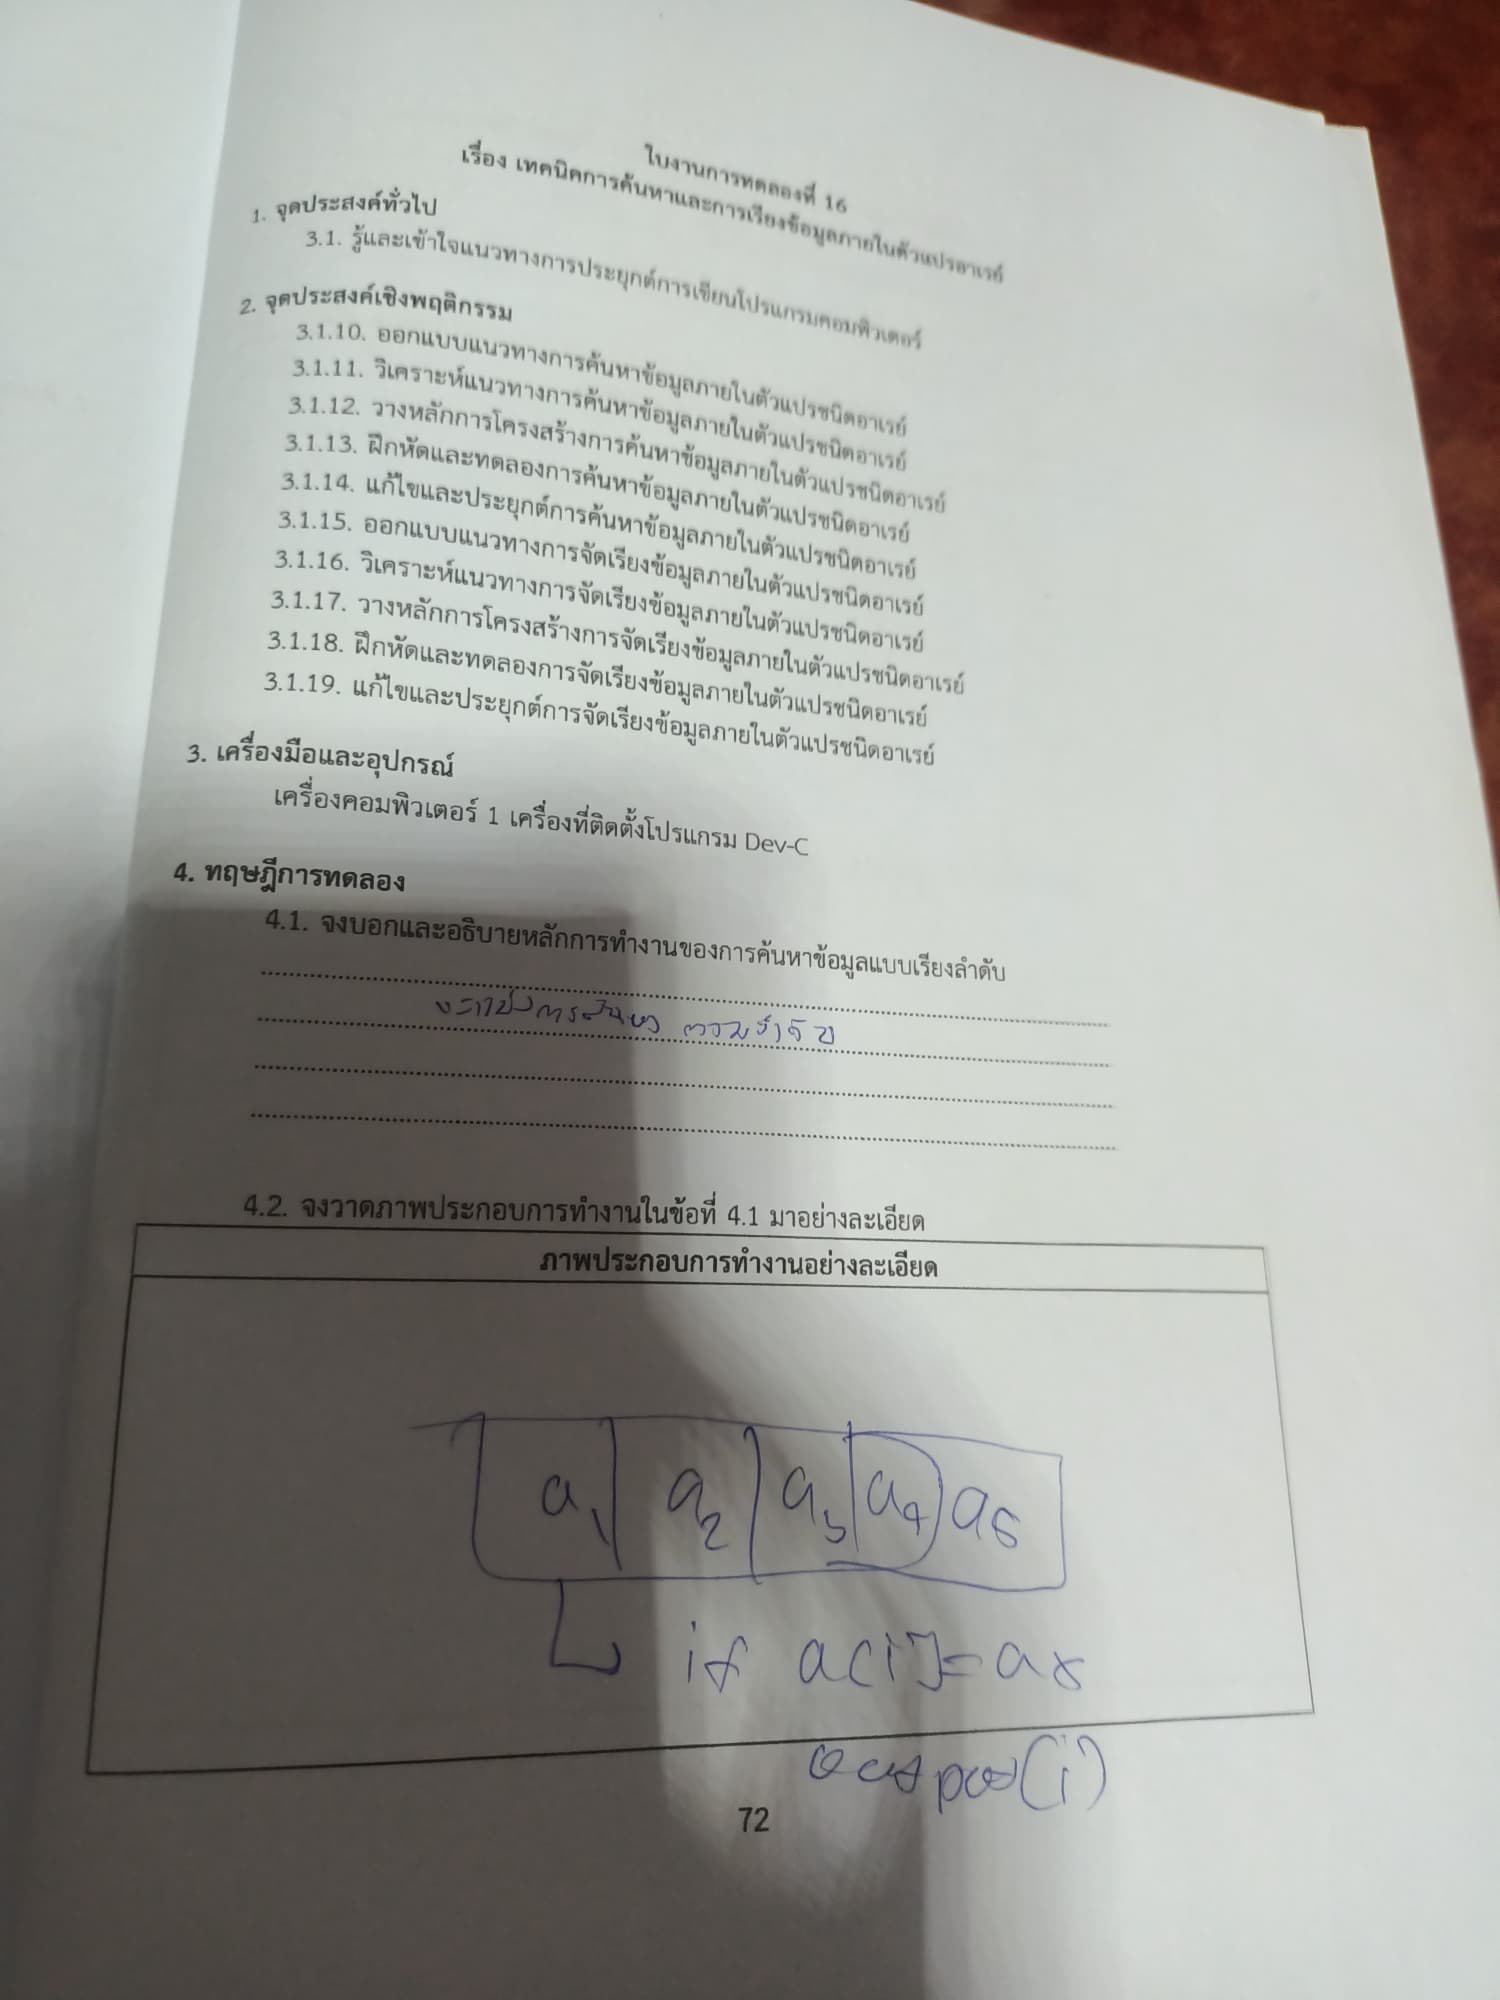 ใบงานการทดลองที่ 16
เรื่อง เทคนิคการค้นหาและการเรียงข้อมูลภายในตัวแปรอาเรย์
1. จุดประสงค์ทั่วไป
3.1. รู้และเข้าใจแนวทางการประยุกต์การเขียนโปรแกรมคอมพิวเตอร์
2. จุดประสงค์เชิงพฤติกรรม
3.1.10. ออกแบบแนวทางการค้นหาข้อมูลภายในตัวแปรชนิดอาเรย์
3.1.11. วิเคราะห์แนวทางการค้นหาข้อมูลภายในตัวแปรชนิดอาเรย์
3.1.12. วางหลักการโครงสร้างการค้นหาข้อมูลภายในตัวแปรชนิดอาเรย์
3.1.13. ฝึกหัดและทดลองการค้นหาข้อมูลภายในตัวแปรชนิดอาเรย์
3.1.14. แก้ไขและประยุกต์การค้นหาข้อมูลภายในตัวแปรชนิดอาเรย์
3.1.15. ออกแบบแนวทางการจัดเรียงข้อมูลภายในตัวแปรชนิดอาเรย์
3.1.16. วิเคราะห์แนวทางการจัดเรียงข้อมูลภายในตัวแปรชนิดอาเรย์
3.1.17. วางหลักการโครงสร้างการจัดเรียงข้อมูลภายในตัวแปรชนิดอาเรย์
3.1.18. ฝึกหัดและทดลองการจัดเรียงข้อมูลภายในตัวแปรชนิดอาเรย์
3.1.19. แก้ไขและประยุกต์การจัดเรียงข้อมูลภายในตัวแปรชนิดอาเรย์
3. เครื่องมือและอุปกรณ์
เครื่องคอมพิวเตอร์ 1 เครื่องที่ติดตั้งโปรแกรม Dev-C
4. ทฤษฎีการทดลอง
4.1. จงบอกและอธิบายหลักการทำงานของการค้นหาข้อมูลแบบเรียงลำดับ
4.2. จงวาดภาพประกอบการทำงานในข้อที่ 4.1 มาอย่างละเอียด
ภาพประกอบการทำงานอย่างละเอียด
a1 a2 a3 a4 a5
if a[i]=
72